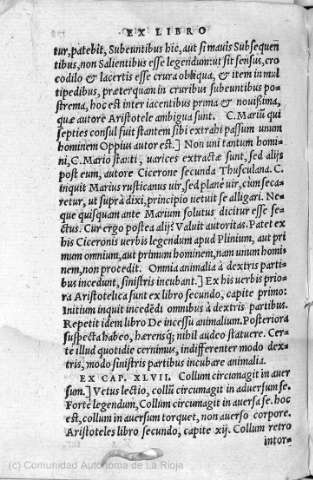 EX LIBRO
tur, patebit, Subeuntibus hic, aut si mauis Subsequen
tibus, non Salientibus esse legendum: ut sit sensus, cro
codilo & lacertis esse crura obliqua, & item in mul
tipedibus, præterquam in cruribus subeuntibus po-
strema, hoc est inter iacentibus prima & nouissima,
quæ autore Aristotele ambigua sunt. C. Mariũ qui
septies consul fuit stantem sibi extrahi passum unum
hominem Oppius autor est.] Non uni tantum homi-
ni, C. Mario stanti, uarices extractæ sunt, sed alijs
post eum, autore Cicerone secunda Thusculana. C.
inquit Marius rusticanus uir, sed plane uir, cum seca-
retur, ut suprà dixi, principio uetuit se alligari. Ne-
que quisquam ante Marium solutus dicitur esse se-
ctus. Cur ergo postea alij? Valuit autoritas. Patet ex
bis Ciceronis uerbis legendum apud Plinium, aut pri
mum omnium, aut primum hominem, nam unum homi
nem, non protedit. Omnia animalia à dextris parti-
bus incedunt, sinistris incubant.] Ex his uerbis prio-
ra Aristotelica sunt ex libro secundo, capite primo:
Initium inquit incedẽdi omnibus à dextris partibus.
Repetit idem libro De incessu animalium. Posteriora
suspecta habeo, harensq́; nihil audeo statuere. Cer-
tè illud quotidie cernimus, indifferenter modo dex-
tris, modo sinistris partibus incubare animalia.
EX CAP. XLVII. Collum circumagit in auer
sum.] Vetus lectio, collũ circumagit in aduersum se.
Fortè legendum, Collum circumagit in auersa se. hoc
est, collum in auersum torquet, non auerso corpore.
Aristoteles libro secundo, capite xij. Collum retro
intor-
(c) Comunidad Autónoma de La Rioja